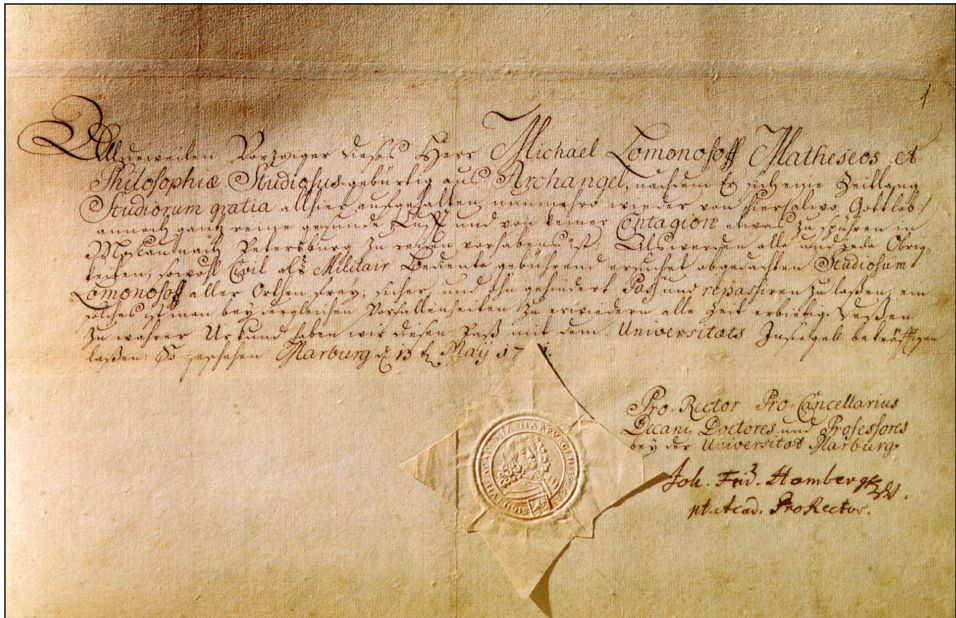 1
Alldieweilen Vorzeiger dieses Herr Michael Lomonosoff Matheseos et
Philosophiæ Studiosus gebürtig aus Archangel, nachdem Er sich eine Zeitlang
Studiorum gratia allhier aufgehalten, nunmehro wieder von hier alwo Gottlob!
annoch gantz reine gesunde Luft und von keiner Contagion etwas zu spühren in
nach Petersburg zu reisen vorhabens ist. Als werden alle und jede Obrig-
keiten, sowohl Civil als Militair Bediente gebührend ersuchet obgedachten Studiosum
Lomonosoff aller Orthen frey, sicher, und ohngehindert Pass und repassiren zu lassen, ein
solches ist man bey dergleichen Vorfallenheiten zu erwiedern alle Zeit erbötig. Dessen
zu wahrer Urkund haben wir diesen Paß mit dem Universitäts Insiegel bekräfftigen
lassen. So geschehen Marburg d 13 May
Pro-Rector Pro-Cancellarius
Decani Doctores und Professores
bey der Universität Marburg.
Joh. Frid. Hombergk
pt. Acad. ProRector.